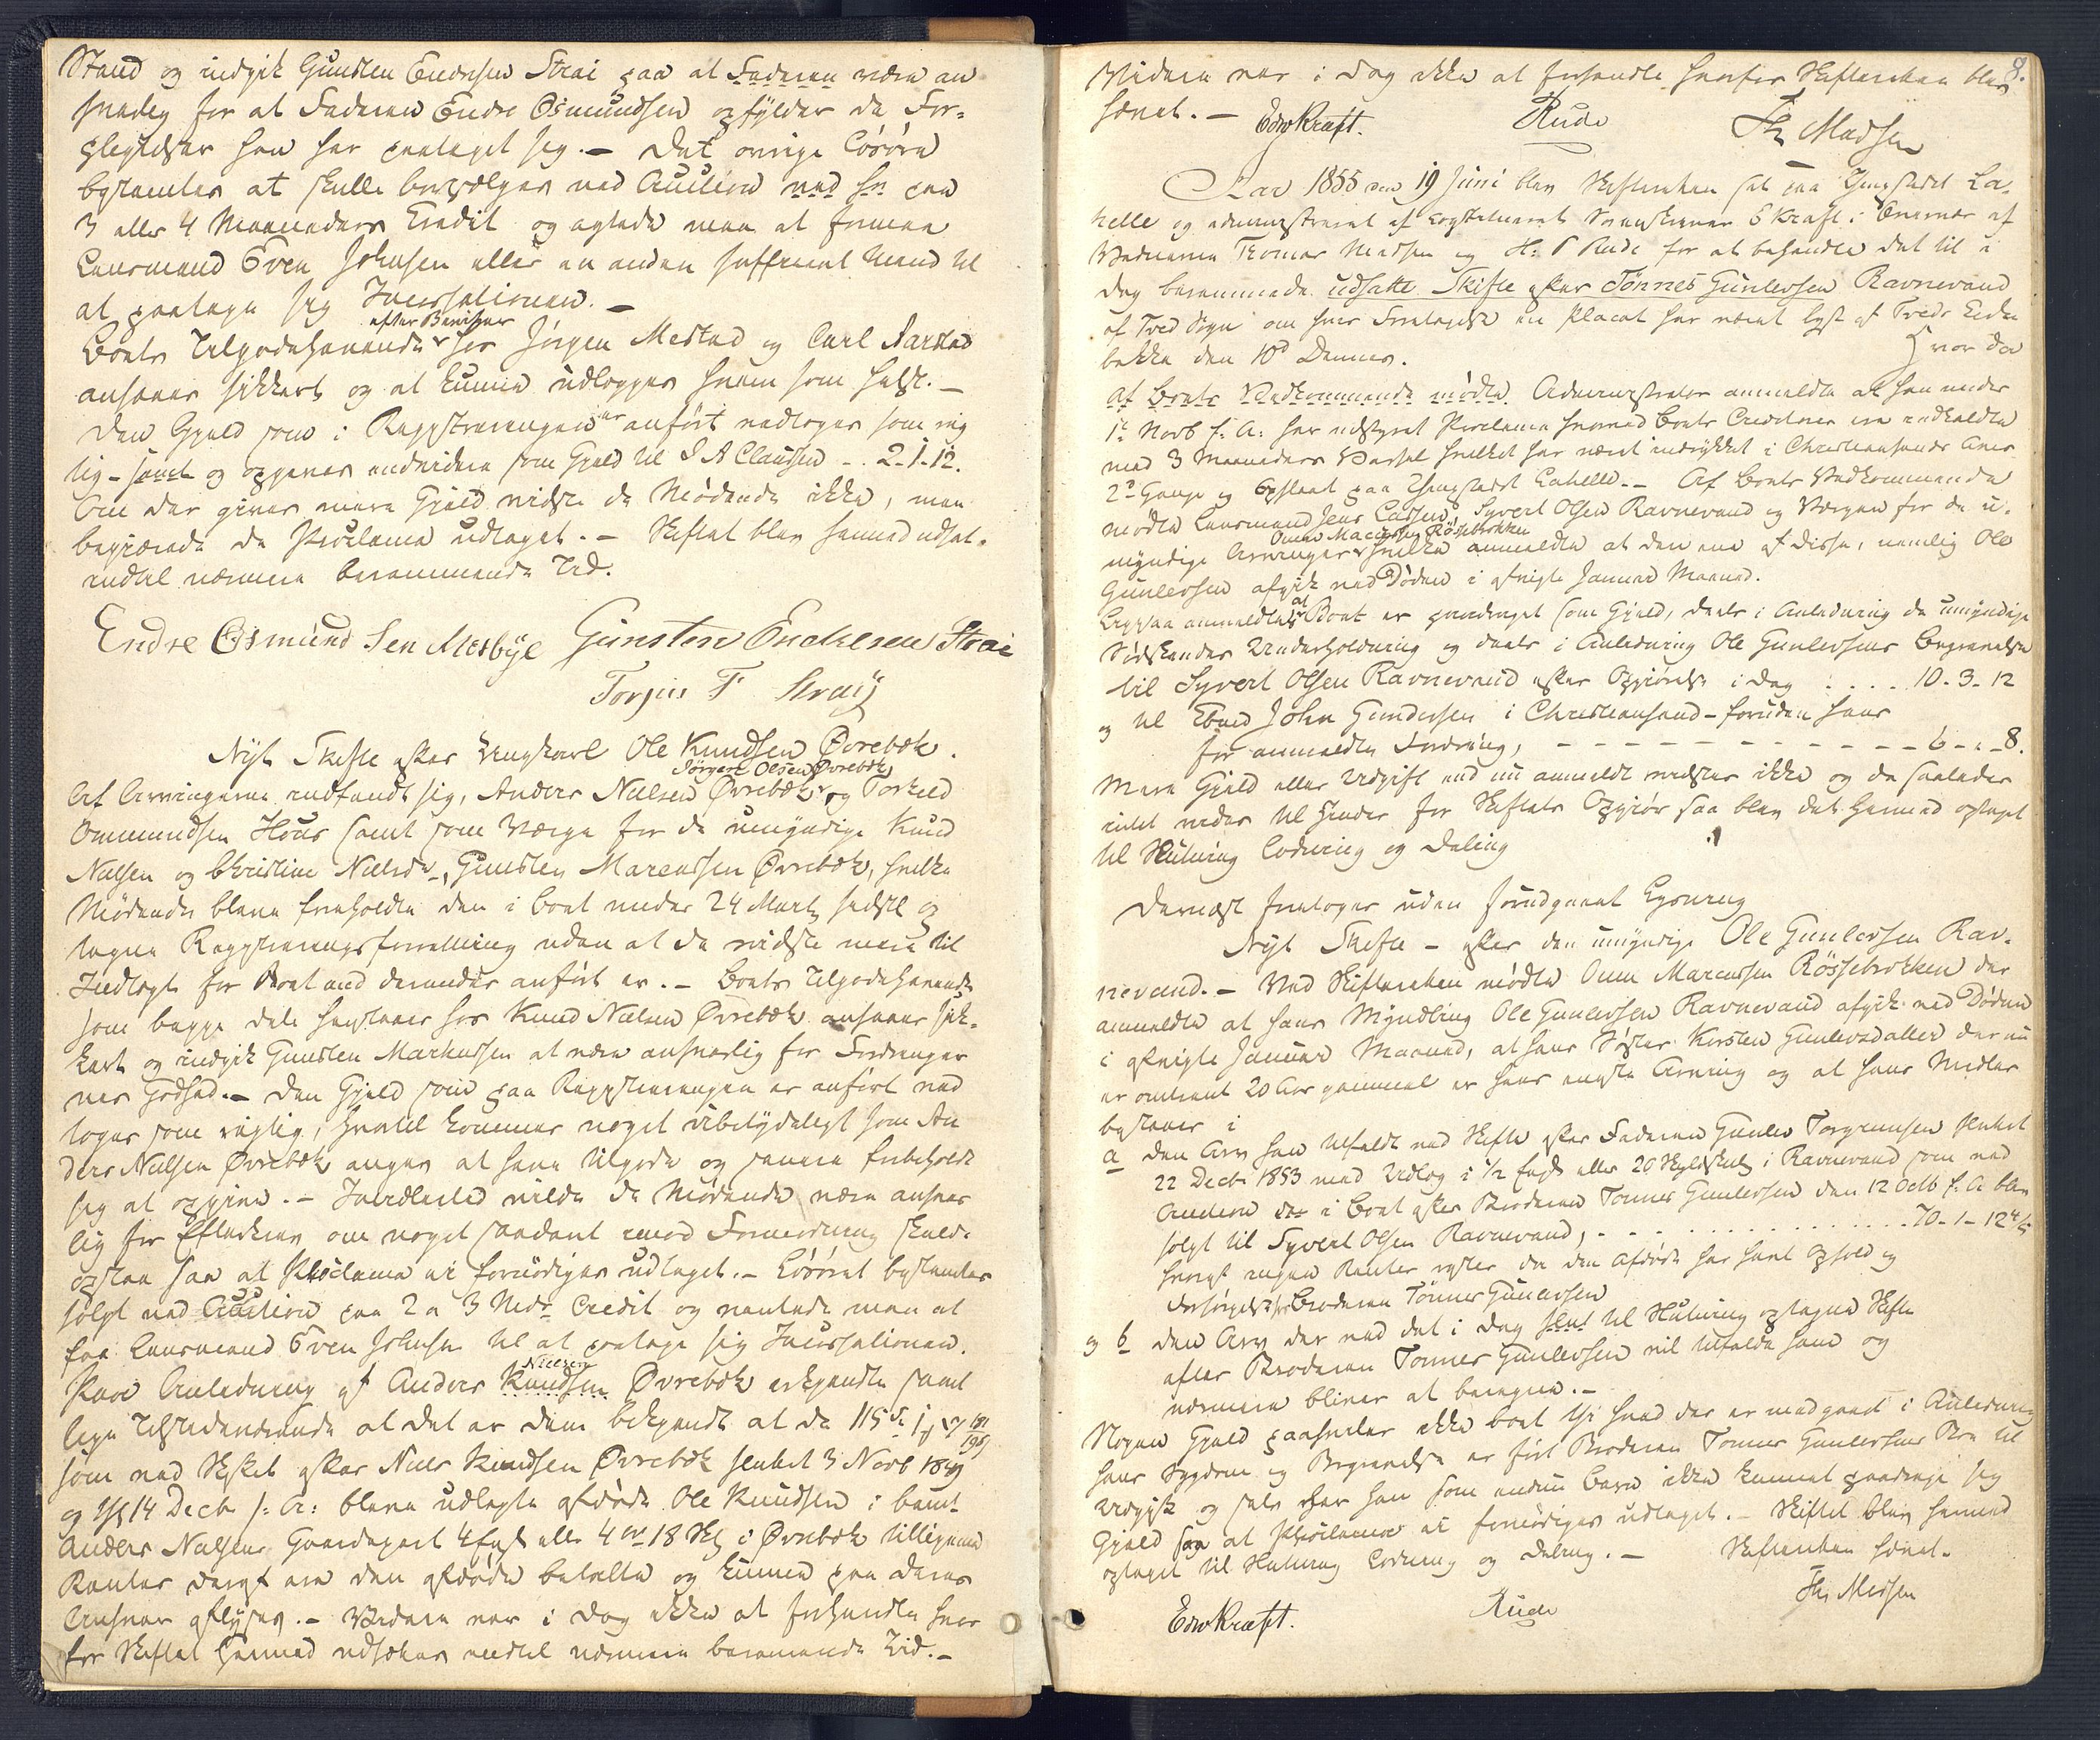 Stand og indgik Gunsten Endresen Strai paa at Faderen være an
svarlig for at Faderen Endre Osmundsen opfylder de For-
pligtelser han har paataget sig. — Det øvrige Løsøre
bestemtes at skulle bortsælges ved Auction med paa
3 eller 4 Maaneders Credit og agtede man at formaa
Lensmand Even Johnsen eller en anden suffisant Mand til
at paatage sig Incassationen. —
efter Beviser
Boets Tilgodehavende hos Jörgen Mestad og Carl Aarstad
ansaaes sikkert og at kunne udlægges hvem som helst. —
Den Gjæld som i Registreringen er anført vedtoges som rig
tig - samt og opgaves endvidere som Gjæld til S A Claussen - . 2-1-12.
Om der gives mere Gjæld vidste de Mödende ikke, men
begjærede de Proclama udtaget. — Skiftet blev hermed udsat
indtil nærmere berammende Tid.
Endre Osmund Sen Mosbÿe Gunsten Endresen Strai
Torjus T Straiÿ
Nyt Skifte efter Ungkarl Ole Knudsen Øvrebøk.
Jörgen Olsen Øvrebök
Af Arvingerne indfandt sig, Anders Nielsen Øvrebøk og Torkild
Ommundsen Hous samt som Værge for de umyndige Knud
Nielsen og Christine Nielsdr, Gunsten Marcussen Øvrebøk, hvilke
Mödende bleve foreholdte den i Boet under 24 Marts sidstl op
tagne Registreringsforretning uden at de vidste mere til
Indtægt for Boet end derunder anført er. — Boets Tilgodehavende
som begge dele haves hos Knud Nielsen Øvrebøk ansaaes sik-
kert og indgik Gunsten Markussen at være ansvarlig for Fordringer
nes Godhed. — Den Gjæld som paa Registreringen er anført ved
toges som rigtig, hvortil kommer noget ubetydeligt som An
ders Nielsen Øvrebøk angav at have tilgode og senere forbeholdt
sig at opgive. — Imidlertid vilde de Mödende være ansvar
lig for Efterkrav om noget saadant imod Formodning skulde
opstaa saa at Proclama ei fornödiges udtaget. — Lösöret bestemtes
solgt ved Auction paa 2 a 3 Mdrs Credit og ventede man at
faa Lensmand Even Johnsen til at paatage sig Incassationen.
Nielsen
Paa Anledning af Anders Knudsen Øvrebøk erkjendte samt
lige Tilstedeværende at det er dem bekjendt at de 115 Sp
som ved Skiftet efter Niels Knudsen Øvrebøk sluttet 3 Novb 1849
og 14 Decbr s: A: bleve udlagte afdöde Ole Knudsen i bemt
Anders Nielsens Gaardepart 4 fjd eller 4 ort 18 Sk i Øvrebøk tilligemed
Renter deraf ere den afdöde betalte og kunne paa deres
Ansvar aflyses. — Videre var i Dag ikke at forhandle hvor
for Skiftet hermed udsættes indtil nærmere berammende Tid. —
8.
Videre var i Dag ikke at forhandle hvorfor Skifteretten blev
hævet. —
Edw Kraft. Rude Th Madsen
Aar 1855 den 19 Juni blev Skifteretten sat paa Thingstedet La-
helle og administreret af constitueret Sorenskriver E Kraft i Overvær af
Vidnerne Thomas Madsen og H: P Rude for at behandle det til i
Dag berammede udsatte Skifte efter Tønnes Gunlevsen Ravnevand
af Tved Sogn om hvis Foretagelse en Placat har været lyst af Tveds Kirke
bakke den 10d Dennes. Hvor da
Af Boets Vedkommende mödte Administrator anmeldte at han under
1te Novb f. A. har udstyret Proclama hvorved Boets Creditorer ere indkaldte
med 3 Maaneders Varsel hvilket har været indrykket i Christiansands Avis
2de Gange og Opslaaet paa Thingstedet Lahelle. — Af Boets Vedkommende
mödte Lensmand Jens Salsen, Syvert Olsen Ravnevand og Værgen for de u-
Omun Marcussen Rössebrokken
myndige Arvinger hvilke anmeldte at den ene af disse, nemlig Ole
Gunlevsen afgik ved Döden i afvigte Januar Maaned.
Ligesaa anmeldtes at Boet er paadraget som Gjæld, deels i Anledning de umyndige
Södskendes Underholdning og deels i Anledning Ole Gunlevsens Begravelse
til Syvert Olsen Ravnevand efter Opgjörelse i dag . . . . . 10-3-12
og til Ebned John Gundersen i Christiansand - foruden hans
för anmeldte Fordring, - - - - - - - - - - - - 6-"-8.
Mere Gjæld eller Udgift end nu anmeldt vidstes ikke og da saaledes
intet videre til Hinder for Skiftets Opgjör saa blev det hermed optaget
til Slutning Lodning og Deling
Dernæst foretoges uden forudgaaet Lysning
Nyt Skifte - efter den umyndige Ole Gunlevsen Rav-
nevand. — Ved Skifteretten mödte Omun Marcussen Rössebrokken der
anmeldte at hans Myndling Ole Gunlevsen Ravnevand afgik ved Döden
i afvigte Januar Maaned, at hans Söster Kirsten Gunlevsdatter der nu
er omtrent 20 Aar gammel er hans eneste Arving og at hans Midler
bestaaer i
a den Arv han tilfaldt ved Skifte efter Faderen Gunlev Torgrimsen sluttet
22 Decbr 1853 med Udlæg i 1/2 fjd eller 20 Skyldskill. i Ravnevand som ved
Auction i Boet efter Broderen Tönnes Gunlevsen den 12 Octb f. A. blev
solgt til Syvert Olsen Ravnevand, - . . . . . . . . . . . . 70-1-12 4/5
hvoraf ingen Renter rester da den Afdöde har havt Ophold og
Forsörgelse hos Broderen Tönnes Gunlevsen
og b den Arv der ved det i Dag til Slutning optagne Skifte
efter Broderen Tönnes Gunlevsen vil tilfalde ham og
nærmere bliver at beregne. —
Nogen Gjæld paahviler ikke boet thi hvad der er medgaaet i Anledning
hans Sygdom og Begravelse er fört Broderen Tönnes Gunlevsens Bo til
Udgift og selv har han som endnu Barn ikke kunnet paadrage sig
Gjæld saa at Proclama ei fornödiges udtaget. — Skiftet blev hermed
optaget til Slutning Lodning og Deling. — Skifteretten hævet.
Edw Kraft. Rude Th Madsen